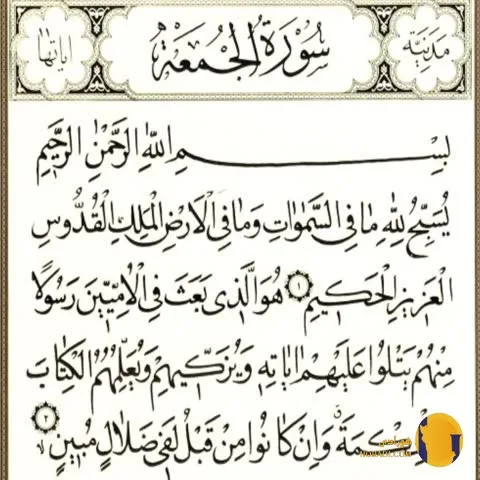 مَدَنِيَّة سُورَةُ الْجُمُعَة اياتها
بِسْمِ اللهِ الرَّحْمٰنِ الرَّحِيمِ
يُسَبِّحُ لِلّٰهِ مَا فِى السَّمٰوَاتِ وَمَا فِى الْاَرْضِ الْمَلِكِ الْقُدُّوسِ
الْعَزِيزِ الْحَكِيمِ ١ هُوَ الَّذِى بَعَثَ فِى الْاُمِّيِّينَ رَسُولًا
مِنْهُمْ يَتْلُوا عَلَيْهِمْ اٰيَاتِهِ وَيُزَكِّيهِمْ وَيُعَلِّمُهُمُ الْكِتَابَ
وَاِنْ كَانُوا مِنْ قَبْلُ لَفِى ضَلَالٍ مُبِينٍ ٢